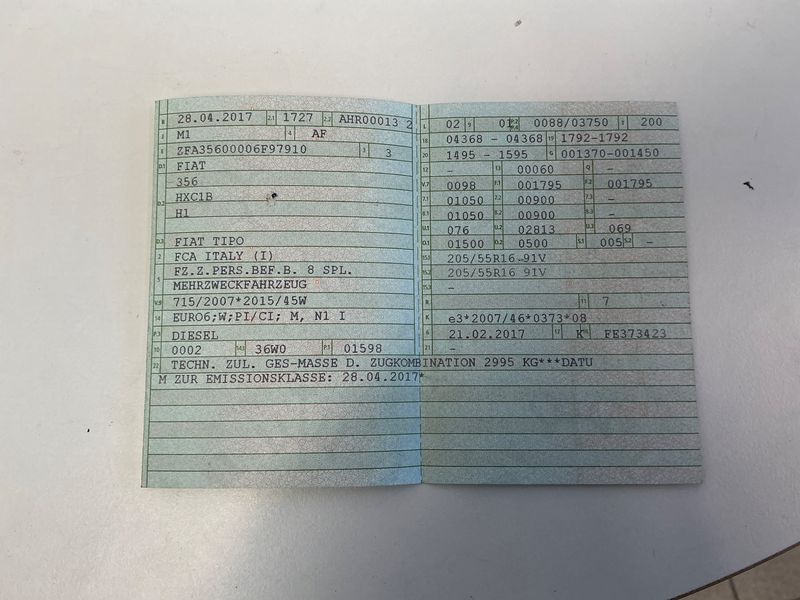 B 28.04.2017 2.1 1727 2.2 AHR00013 2
J M1 4 AF
E ZFA35600006F97910 3 3
D.1 FIAT
356
D.2 HXC1B
H1
D.3 FIAT TIPO
2 FCA ITALY (I)
5 FZ.Z.PERS.BEF.B. 8 SPL.
MEHRZWECKFAHRZEUG
V.9 715/2007*2015/45W
14 EURO6;W;PI/CI; M, N1 I
P.3 DIESEL
10 0002 14.1 36W0 P.1 01598
22 TECHN. ZUL. GES-MASSE D. ZUGKOMBINATION 2995 KG***DATU
M ZUR EMISSIONSKLASSE: 28.04.2017*
L 02 9 01 0088/03750 T 200
18 04368 - 04368 19 1792-1792
20 1495 - 1595 G 001370-001450
12 - 13 00060 Q -
V.7 0098 F.1 001795 F.2 001795
7.1 01050 7.2 00900 7.3 -
8.1 01050 8.2 00900 8.3 -
U.1 076 U.2 02813 U.3 069
O.1 01500 O.2 0500 S.1 005 S.2 -
15.1 205/55R16 91V
15.2 205/55R16 91V
15.3 -
R 11 7
K e3*2007/46*0373*08
6 21.02.2017 17 K 16 FE373423
21 -